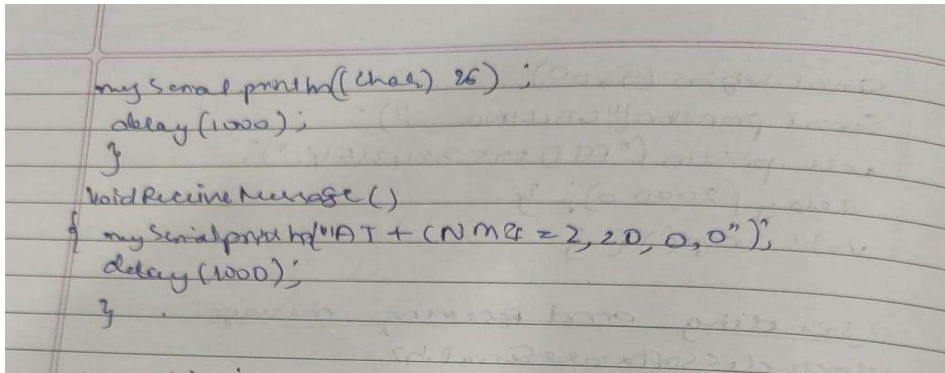 my Serial println((char) 26);
delay(1000);
}
void Receive Message()
{ my Serial println("AT+CNMI=2,20,0,0");
delay(1000);
}